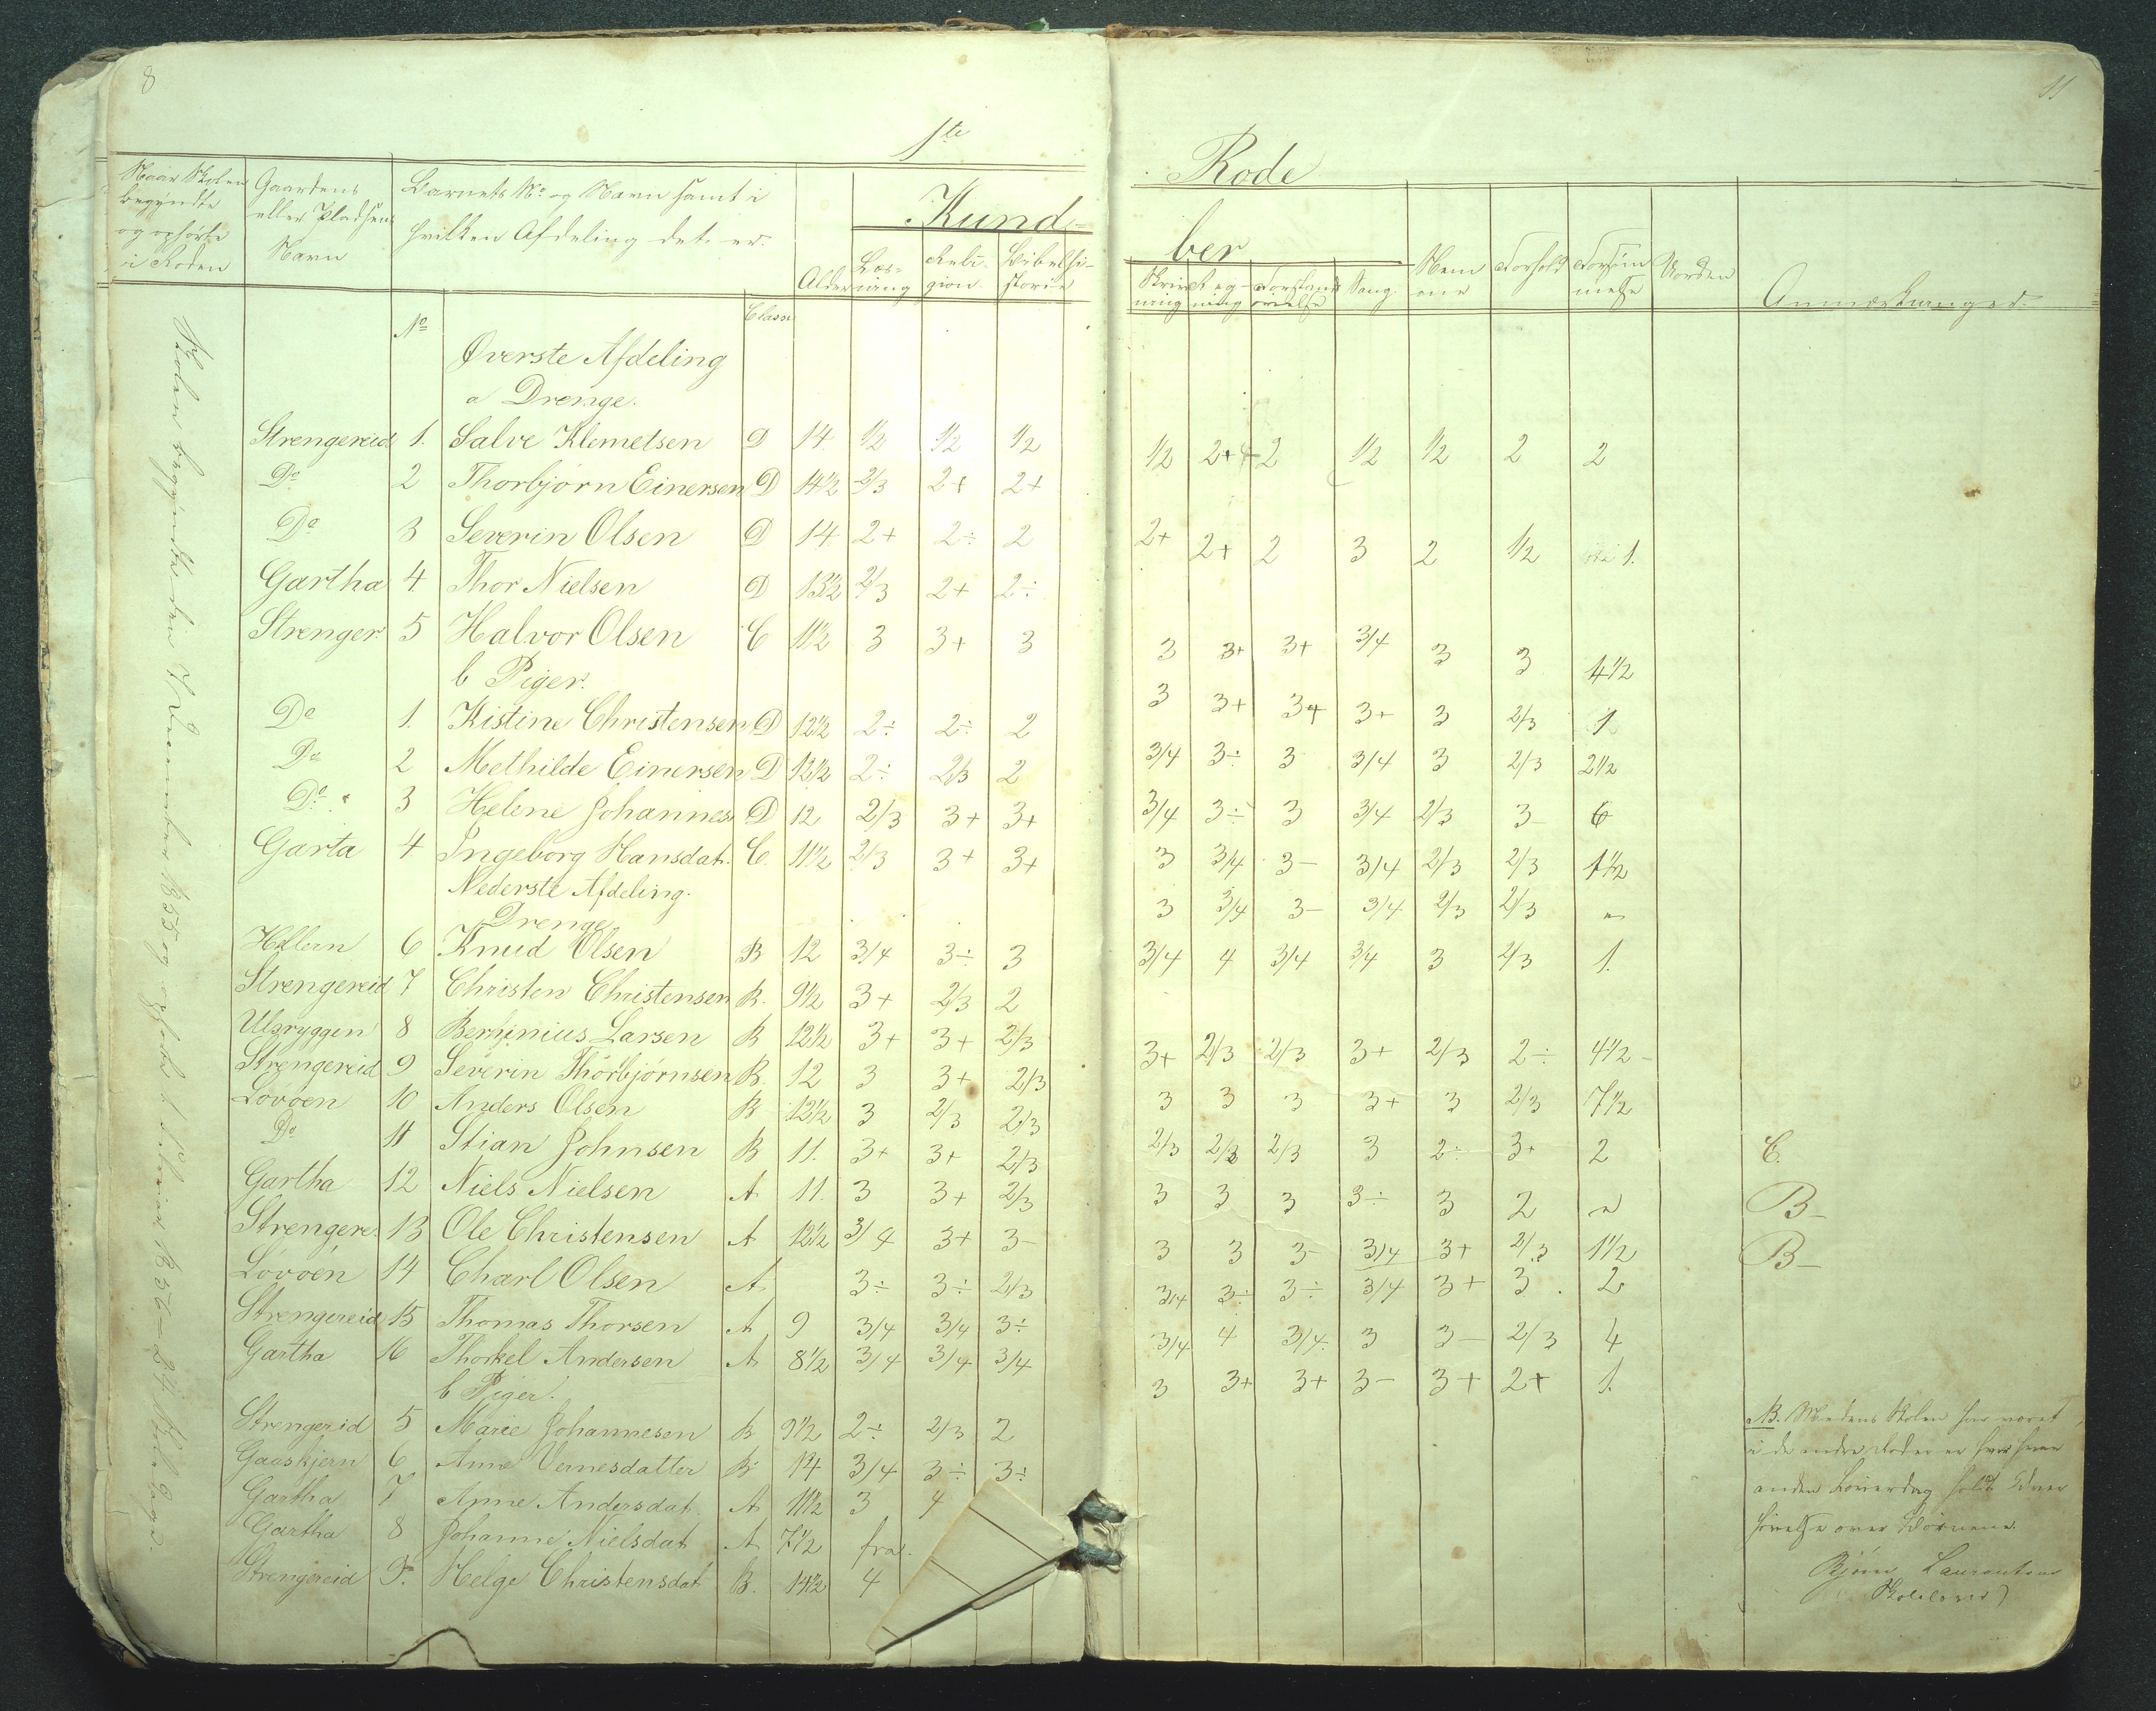 8
11
1ste
Rode
Naar Skolen begyndte og ophørte i Roden
Gaardens eller Pladsens Navn
Barnets No og Navn samt i hvilken Afdeling det er.
Alder
Kund-
Læsning
Religion
Bibelhistorie
skaber
Skrivning
Regning
Forstandsøvelse
Sang
Nemme
Forhold
Forsømmelse
Orden
Anmærkninger.
No
Classe
Øverste Afdeling
a Drenge.
Strengereid 1. Salve Klemetsen D 14 1/2 1/2 1/2
Do 2 Thorbjørn Einersen D 14 1/2 2/3 2+ 2+
Do 3 Severin Olsen D 14 2+ 2÷ 2
Gartha 4 Thor Nielsen D 13 1/2 2/3 2+ 2÷
Strenger 5 Halvor Olsen C 11 1/2 3 3+ 3
b Piger.
Do 1. Kistine Christensen D 12 1/2 2÷ 2÷ 2
Do 2 Methilde Einersen D 12 1/2 2÷ 2/3 2
Do 3 Helene Johannes D 12 2/3 3+ 3+
Garta 4 Ingeborg Hansdat. C. 11 1/2 2/3 3+ 3+
Nederste Afdeling.
Drenge
Hellern 6 Knud Olsen B 12 3/4 3÷ 3
Strengereid 7 Christen Christensen B. 9 1/2 3+ 2/3 2
Ulsryggen 8 Larsen B 12 1/2 3+ 3+ 2/3
Strengereid 9 Severin Thorbjørnsen B. 12 3 3+ 2/3
Lovøen 10 Anders Olsen B 12 1/2 3 2/3 2/3
Do 11 Stian Johnsen B 11. 3+ 3+ 2/3
Gartha 12 Niels Nielsen A 11. 3 3+ 2/3
Strengere. 13 Ole Christensen A 12 1/2 3/4 3+ 3-
Lovøen 14 Charl Olsen A. 3÷ 3÷ 2/3
Strengereid 15 Thomas Thorsen A 9 3/4 3/4 3÷
Gartha 16 Thorkel Andersen A 8 1/2 3/4 3/4 3/4
b Piger.
Strengereid 5 Marie Johannesen B 9 1/2 2÷ 2/3 2
Gaaskjern 6 Anne Vernesdatter B 14 3/4 3÷ 3÷
Gartha 7 Anne Andersdat. A 11 1/2 3 4
Gartha 8 Johanne Nielsdat A 7 1/2 fra.
Strengereid 9. Helge Christensdat B. 14 1/2 4
1/2 2+ 2 1/2 1/2 2 2
2+ 2+ 2 3 2 1/2 1.
3 3+ 3+ 3/4 3 3 4 1/2
3 3+ 3+ 3+ 3 2/3 1
3/4 3÷ 3 3/4 3 2/3 2 1/2
3/4 3÷ 3 3/4 2/3 3- 6
3 3/4 3- 3/4 2/3 2/3 1 1/2
3 3/4 3- 3/4 2/3 2/3
3/4 4 3/4 3/4 3 2/3 1.
3+ 2/3 2/3 3+ 2/3 2÷ 4 1/2 -
3 3 3 3+ 3 2/3 7 1/2
2/3 2/3 2/3 3 2÷ 3+ 2 C.
3 3 3 3÷ 3 2 B-
3 3 3- 3/4 3+ 2/3 1 1/2 B-
3/4 3÷ 3÷ 3/4 3+ 3. 2
3/4 4 3/4 3 3- 2/3 4
3 3+ 3+ 3- 3+ 2+ 1.
NB. Medens Skolen har været
i de andre Roder er hver
anden Løverdag holdt
hørelse over Børnene.
Bjørn Laurentsen
Skolelærer
Skolen begyndte den 7 December 1855 og ophørte 1856 - 24 Skoledage.